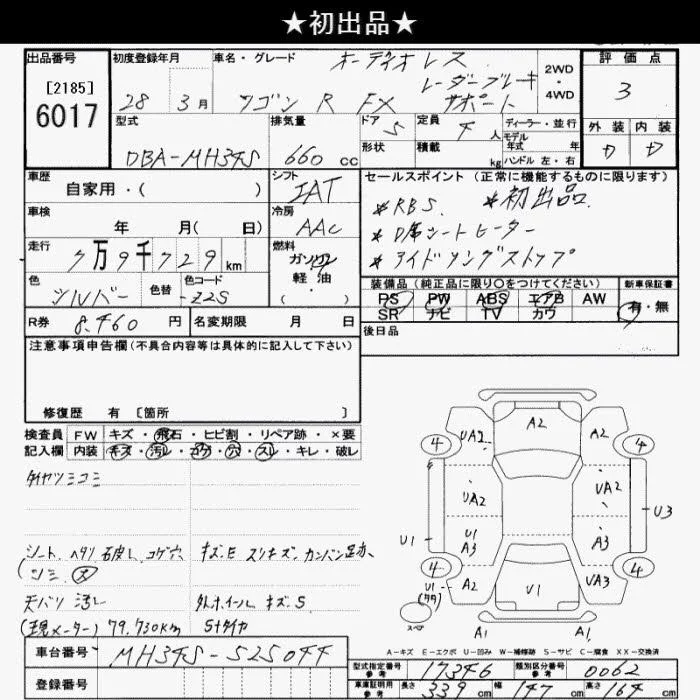 ★初出品★
出品番号
[2185]
6017
初度登録年月
28年 3月
車名・グレード
オーディオレス
レーダーブレーキ
ワゴン R FX サポート
2WD
・
4WD
評価点
3
外装 内装
型式
DBA-MH34S
排気量
660 cc
ドア
5
形状
定員
4人
積載
kg
ディーラー・並行
モデル
年式 年
ハンドル 左・右
車歴
自家用・( )
シフト
IAT
車検
年 月( 日)
冷房
AAC
走行
7万9千729km
燃料
ガソリン
軽油
・( )
色
シルバー
色替
色コード
Z2S
R券 8,460円
名変期限 月 日
セールスポイント (正常に機能するものに限ります)
*RBS *初出品
*D席シートヒーター
*アイドリングストップ
装備品 (純正品に限り○をつけてください)
PS PW ABS エアB AW
SR ナビ TV カワ
新車保証書
有・無
後日品
注意事項申告欄 (不具合内容等は具体的に記入して下さい)
修復歴 有 [箇所 ]
検査員
記入欄
FW キズ・飛石・ヒビ割・リペア跡・×要
内装 キズ・汚レ・コゲ・穴・スレ・キレ・破レ
タイヤツミコミ
シート ヘタリ 破レ コゲ穴
天バリ 汚レ
外ホイール キズ S
(現メーター) 79,730km
Sタイヤ
車台番号 MH34S-525044
登録番号
4 UA2 A2 A2 4
UA2 UA2
U1 U1 A3 A3 U3
4 A2 U1 UA3 4
U1
スペア
A1 A1
A-キズ E-エクボ U-凹み W-補修跡 S-サビ C-腐食 XX-交換済
型式指定番号
参考
17346
類別区分番号
参考
0062
車庫証明用
参考
長さ 339 cm 幅 147 cm 高さ 164 cm